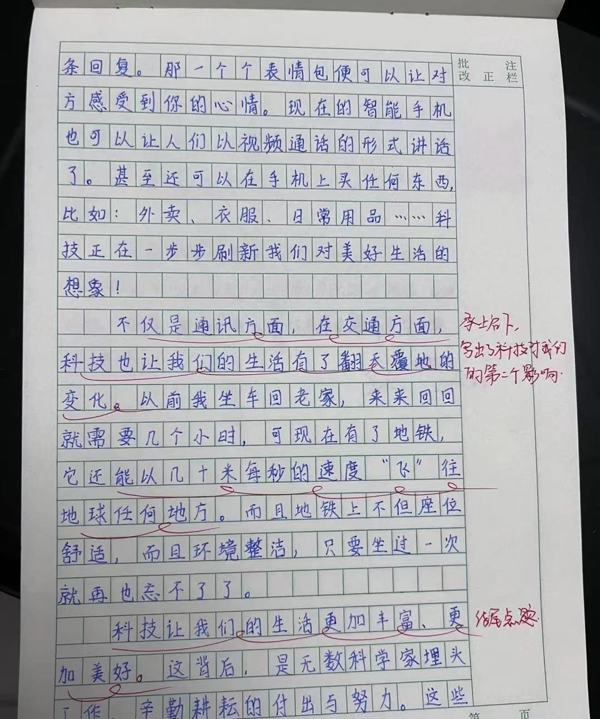 批注
改正栏
条回复。那一个个表情包便可以让对
方感受到你的心情。现在的智能手机
也可以让人们以视频通话的形式讲话
了。甚至还可以在手机上买任何东西,
比如：外卖、衣服、日常用品……科
技正在一步步刷新我们对美好生活的
想象！
不仅是通讯方面，在交通方面，
科技也让我们的生活有了翻天覆地的
变化。以前我坐车回老家，来来回回
就需要几个小时，可现在有了地铁，
它还能以几十米每秒的速度“飞”往
地球任何地方。而且地铁上不但座位
舒适，而且环境整洁，只要坐过一次
就再也忘不了了。
科技让我们的生活更加丰富、更
加美好。这背后，是无数科学家埋头
工作、辛勤耕耘的付出与努力。这些
承上启下,
写出了科技对我们
的第二个影响.
结尾点题.
第 页